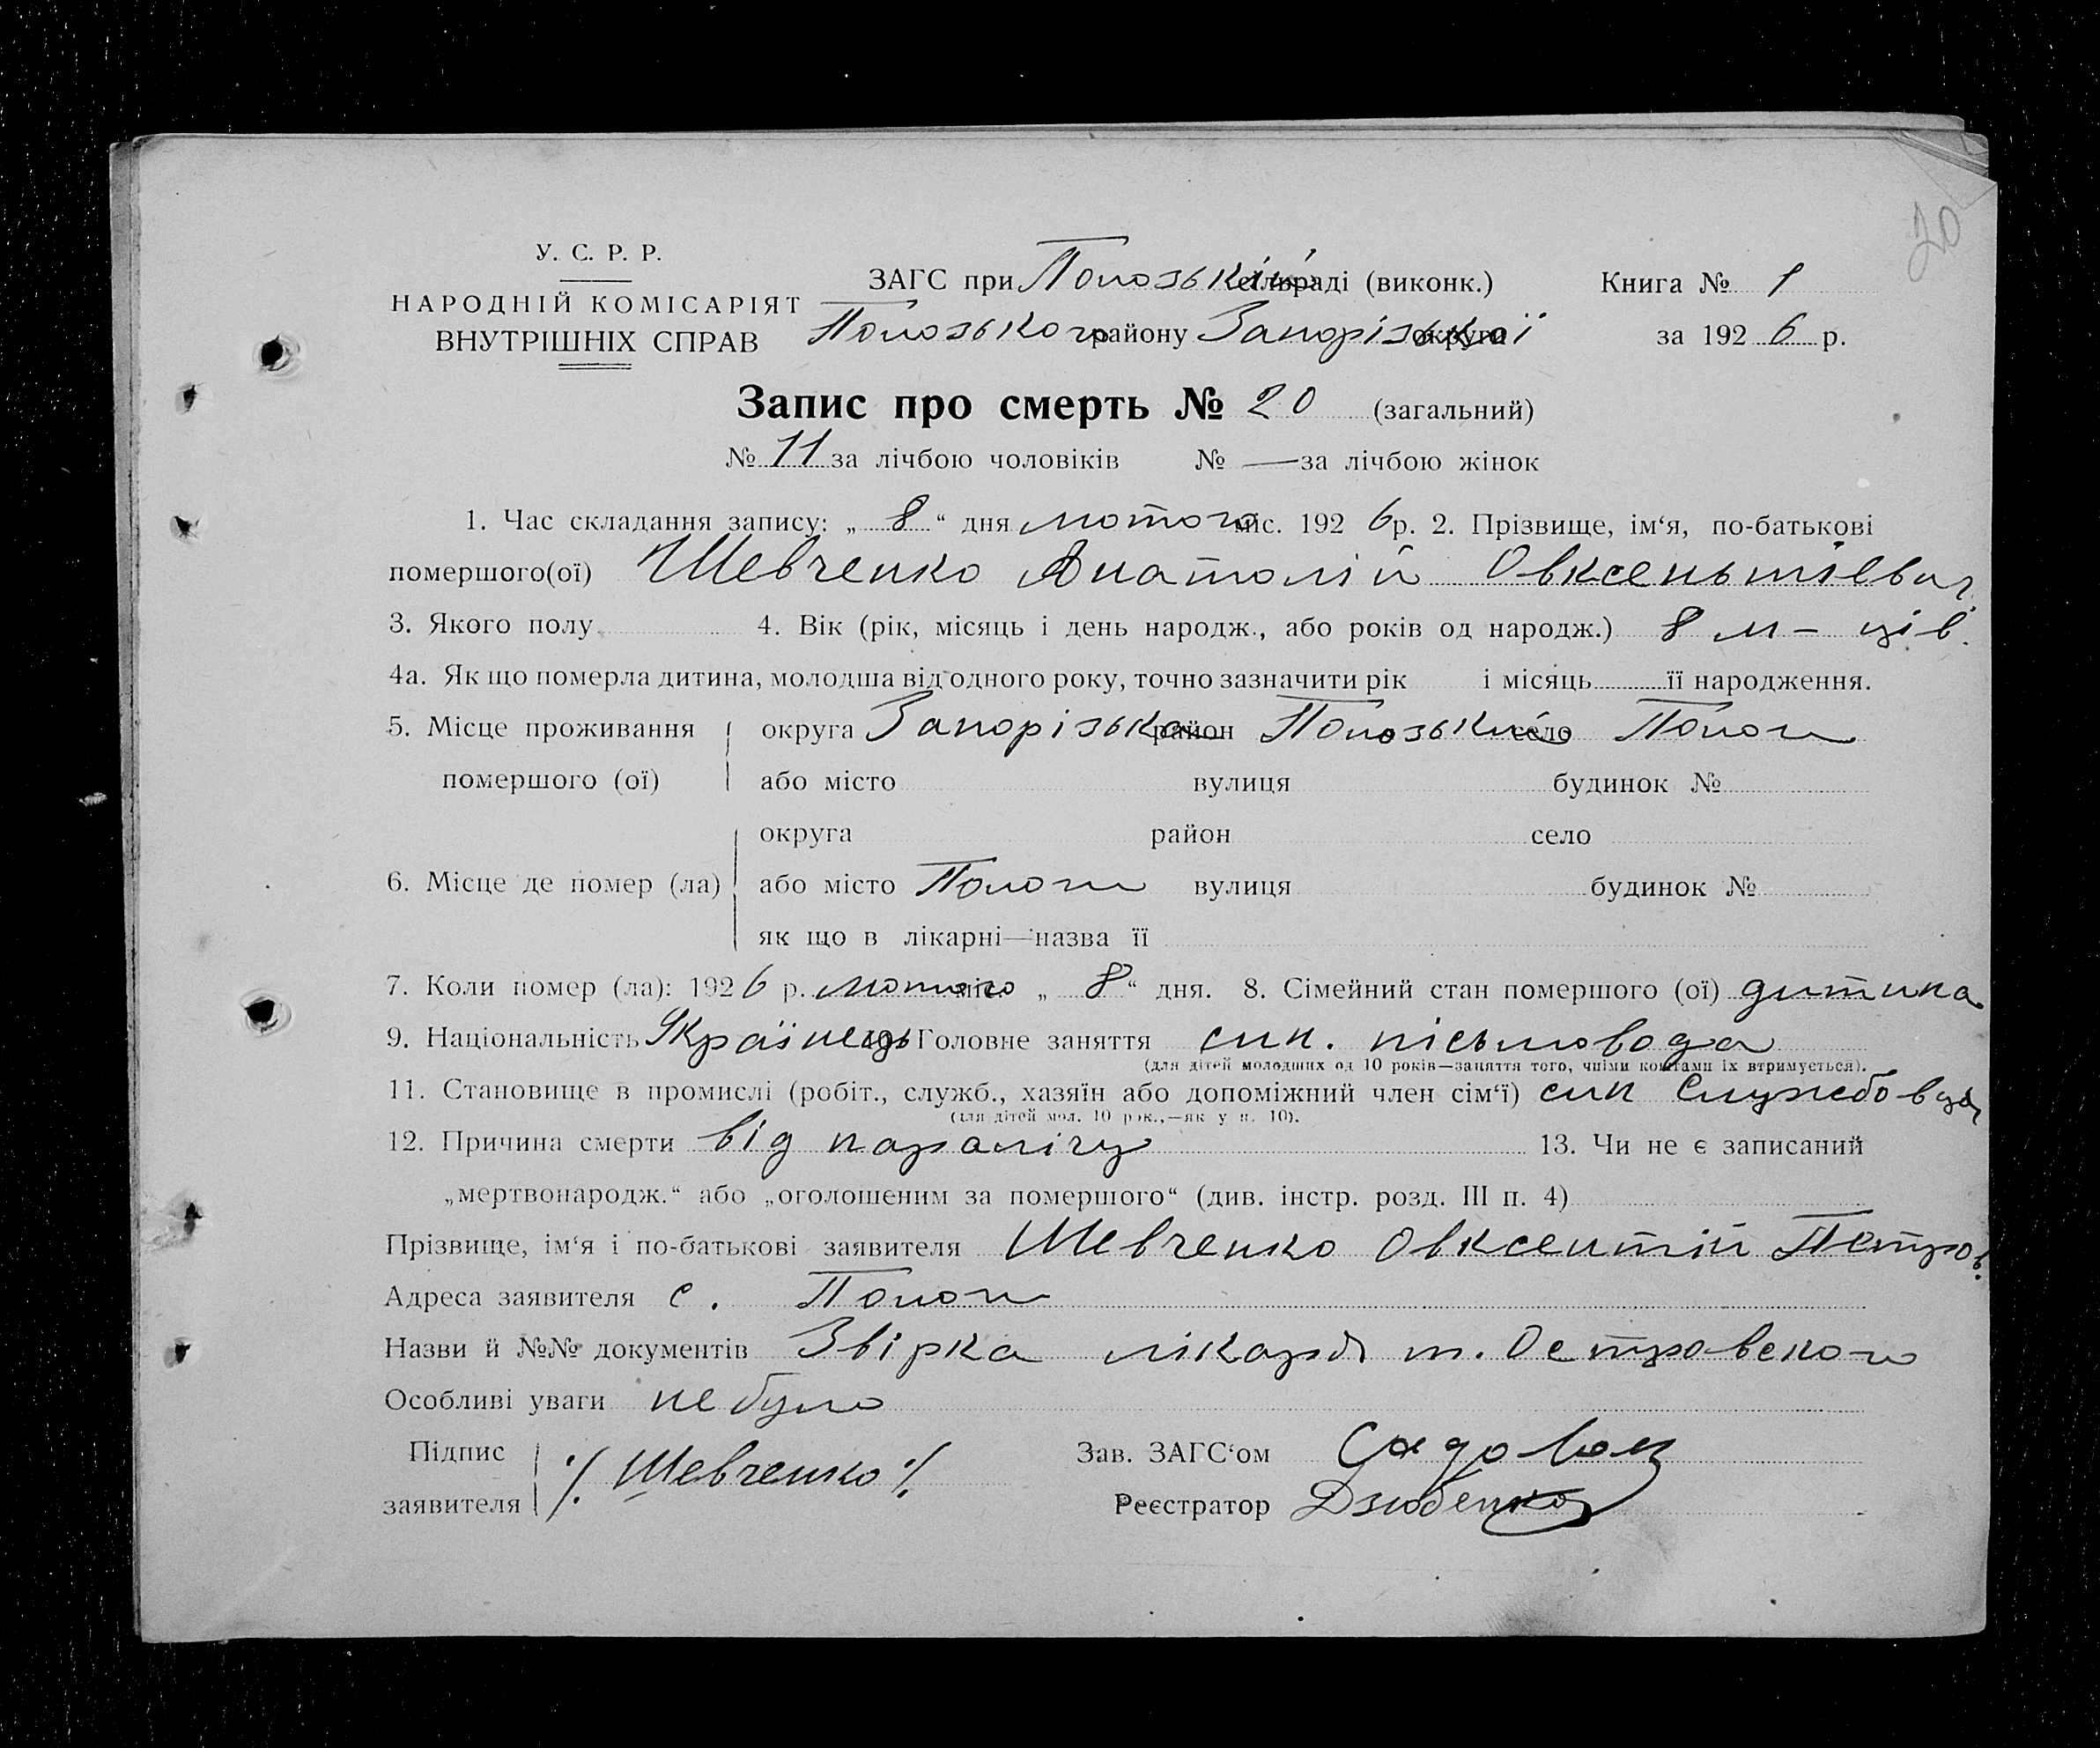 20
У. С. Р. Р.
НАРОДНІЙ КОМІСАРІЯТ
ВНУТРІШНІХ СПРАВ
ЗАГС при Полозькій сільраді (виконк.)
Полозького району Запорізької округи
Книга № 1
за 1926 р.
Запис про смерть № 20 (загальний)
№ 11 за лічбою чоловіків № — за лічбою жінок
1. Час складання запису: „ 8 “ дня лютого міс. 1926 р. 2. Прізвище, ім‘я, по-батькові
помершого(ої) Шевченко Анатолій Овксентієвич
3. Якого полу 4. Вік (рік, місяць і день народж., або років од народж.) 8 м – ців.
4а. Як що померла дитина, молодша від одного року, точно зазначити рік і місяць її народження.
5. Місце проживання помершого (ої) округа Запорізька район Полозький село Пологи
або місто вулиця будинок №
округа район село
6. Місце де помер (ла) або місто Пологи вулиця будинок №
як що в лікарні—назва її
7. Коли помер (ла): 1926 р. лютого міс. „ 8 “ дня. 8. Сімейний стан помершого (ої) дитина
9. Національність Українець 10. Головне заняття син. пісьмовода
(для дітей молодших од 10 років—заняття того, чпіми коштами їх втримується).
11. Становище в промислі (робіт., служб., хазяїн або допоміжний член сім‘ї) син службовця
(для дітей мол. 10 рок.,—як у п. 10).
12. Причина смерти від паралічу 13. Чи не є записаний
„мертвонародж.“ або „оголошеним за помершого“ (див. інстр. розд. III п. 4)
Прізвище, ім‘я і по-батькові заявителя Шевченко Овксентій Петров.
Адреса заявителя с. Пологи
Назви й №№ документів Звірка лікаря т. Островского
Особливі уваги не було
Підпис заявителя ⁒ Шевченко ⁒ Зав. ЗАГС‘ом
Реєстратор Дзюбенко